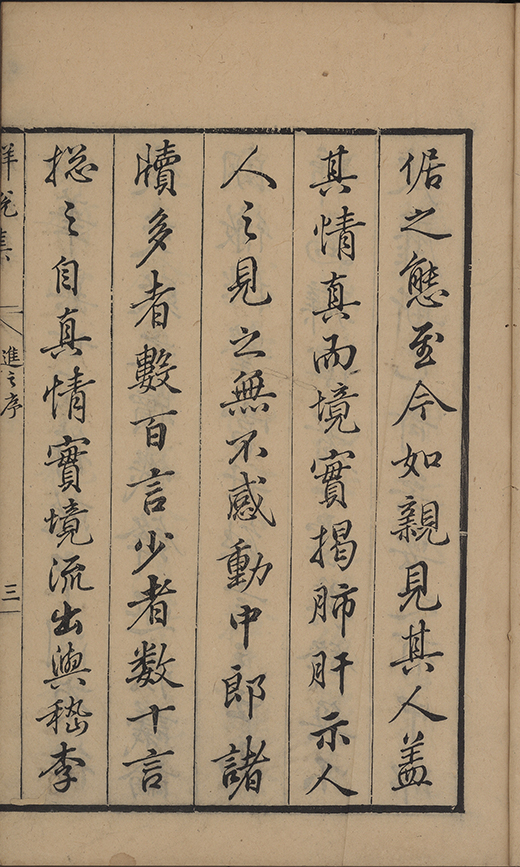 倨之態至今如親見其人盖
其情真而境實揭肺肝示人
人之見之無不感動中郎諸
牘多者數百言少者数十言
捴之自真情實境流出與嵇李
進之序
三